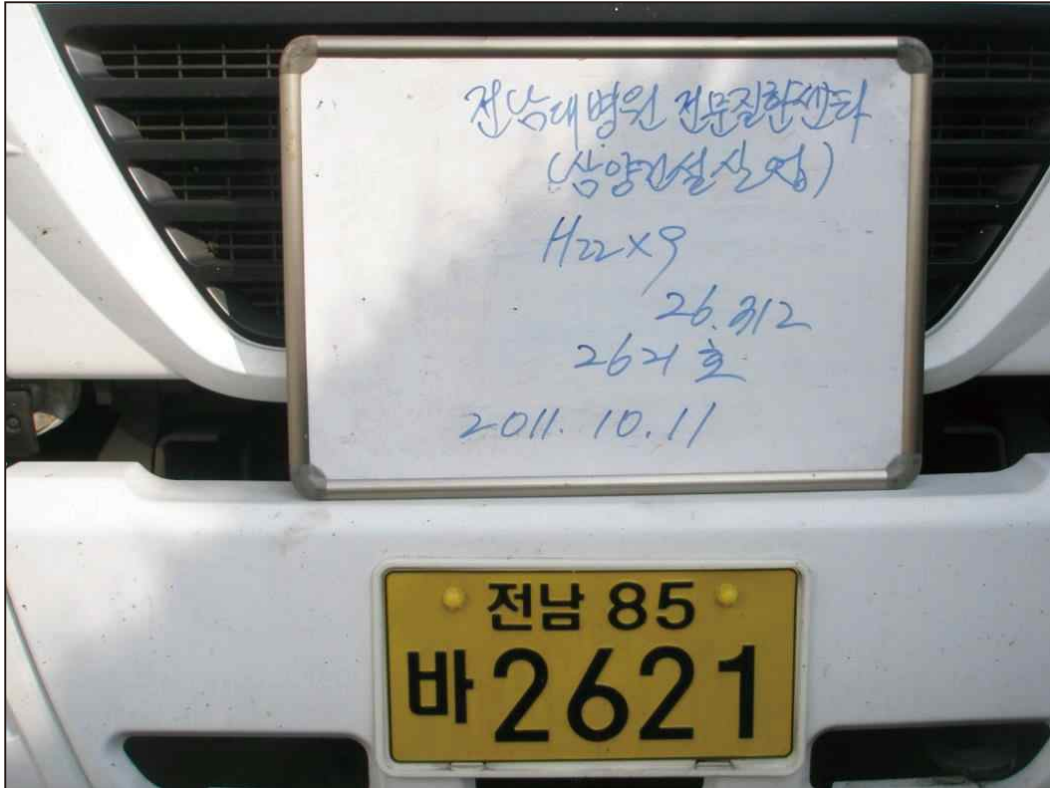 전남대병원 전문질환센타
(삼양건설산업)
H22×9
26.312
2621호
2011. 10. 11
전남 85
바 2621